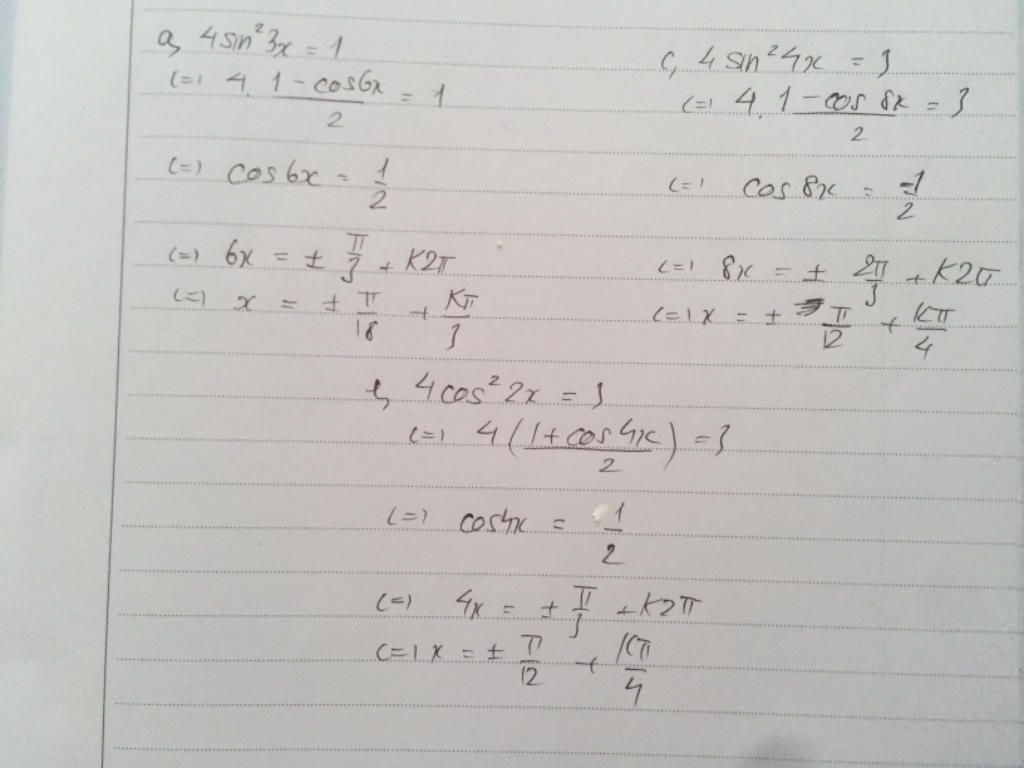 a, 4sin²3x = 1
(=) 4. (1 - cos6x)/2 = 1
(=) cos6x = 1/2
(=) 6x = ± π/3 + K2π
(=) x = ± π/18 + Kπ/3
c, 4 sin²4x = 3
(=) 4. (1 - cos 8x)/2 = 3
(=) cos 8x = -1/2
(=) 8x = ± 2π/3 + K2π
(=) x = ± π/12 + Kπ/4
4cos²2x = 3
(=) 4 ((1 + cos4x)/2) = 3
(=) cos4x = 1/2
(=) 4x = ± π/3 + K2π
(=) x = ± π/12 + Kπ/4